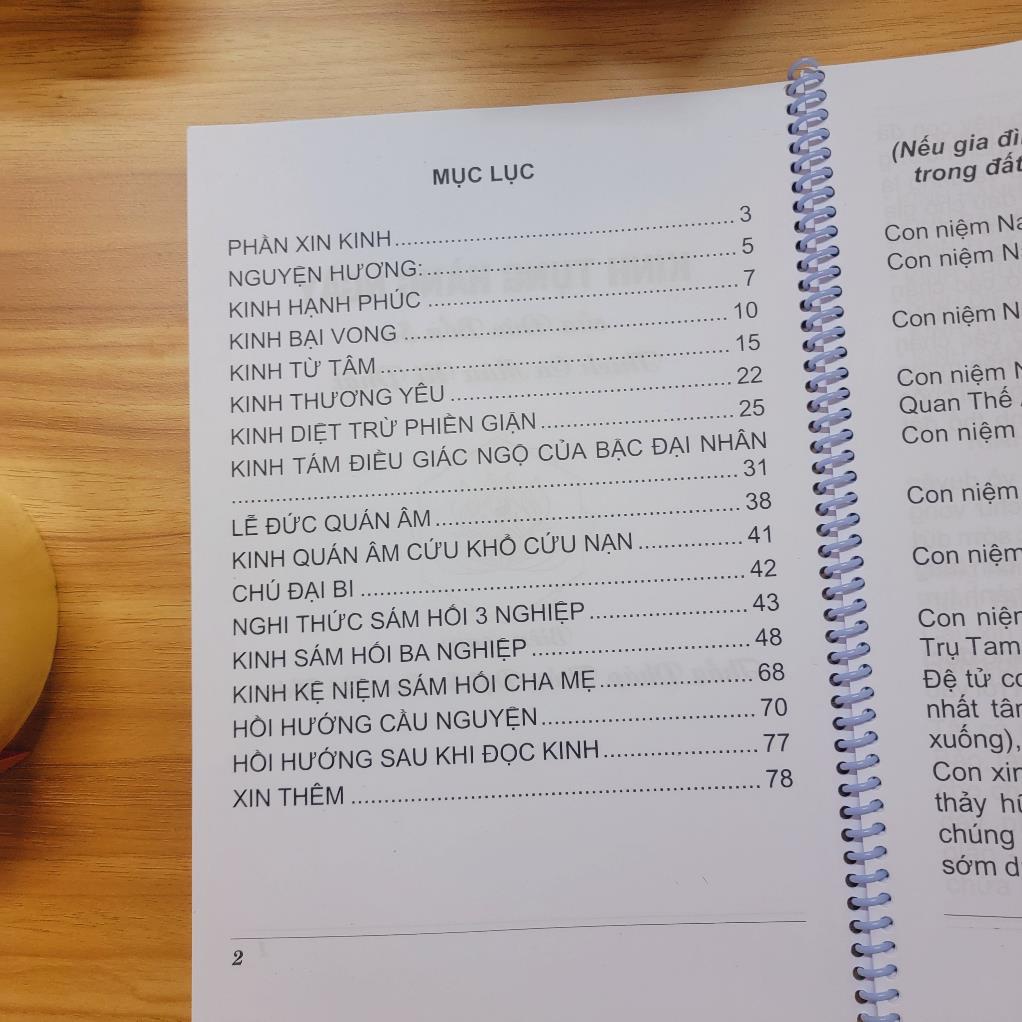 MỤC LỤC
PHẦN XIN KINH 3
NGUYỆN HƯƠNG: 5
KINH HẠNH PHÚC 7
KINH BẠI VONG 10
KINH TỪ TÂM 15
KINH THƯƠNG YÊU 22
KINH DIỆT TRỪ PHIỀN GIẬN 25
KINH TÁM ĐIỀU GIÁC NGỘ CỦA BẬC ĐẠI NHÂN
31
LỄ ĐỨC QUÁN ÂM 38
KINH QUÁN ÂM CỨU KHỔ CỨU NẠN 41
CHÚ ĐẠI BI 42
NGHI THỨC SÁM HỐI 3 NGHIỆP 43
KINH SÁM HỐI BA NGHIỆP 48
KINH KỆ NIỆM SÁM HỐI CHA MẸ 68
HỒI HƯỚNG CẦU NGUYỆN 70
HỒI HƯỚNG SAU KHI ĐỌC KINH 77
XIN THÊM 78
2
(Nếu gia
trong đất
Con niệm
Con niệm
Con niệm
Con niệm
Quan Thế
Con niệm
Con niệm
Con niệm
Con niệm
Trụ Tam
Đệ tử
nhất
xuống),
Con xin
thảy
chúng
sớm